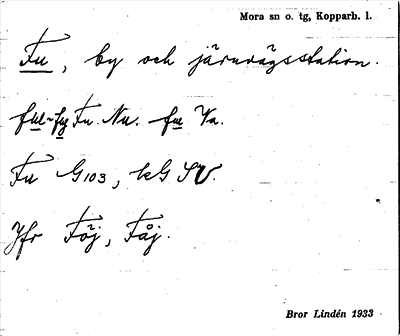 Mora sn o. tg, Kopparb. l.
Fu, by och järnvägsstation.
Fu. Nu. fu Va.
Fu G103, kG SV.
Jfr Föj, Fåj.
Bror Lindén 1933